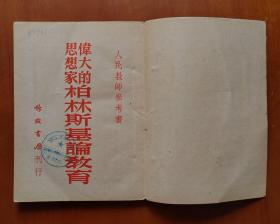 人民教師參考書
偉大的
思想家柏林斯基論教育
啟書局刊行